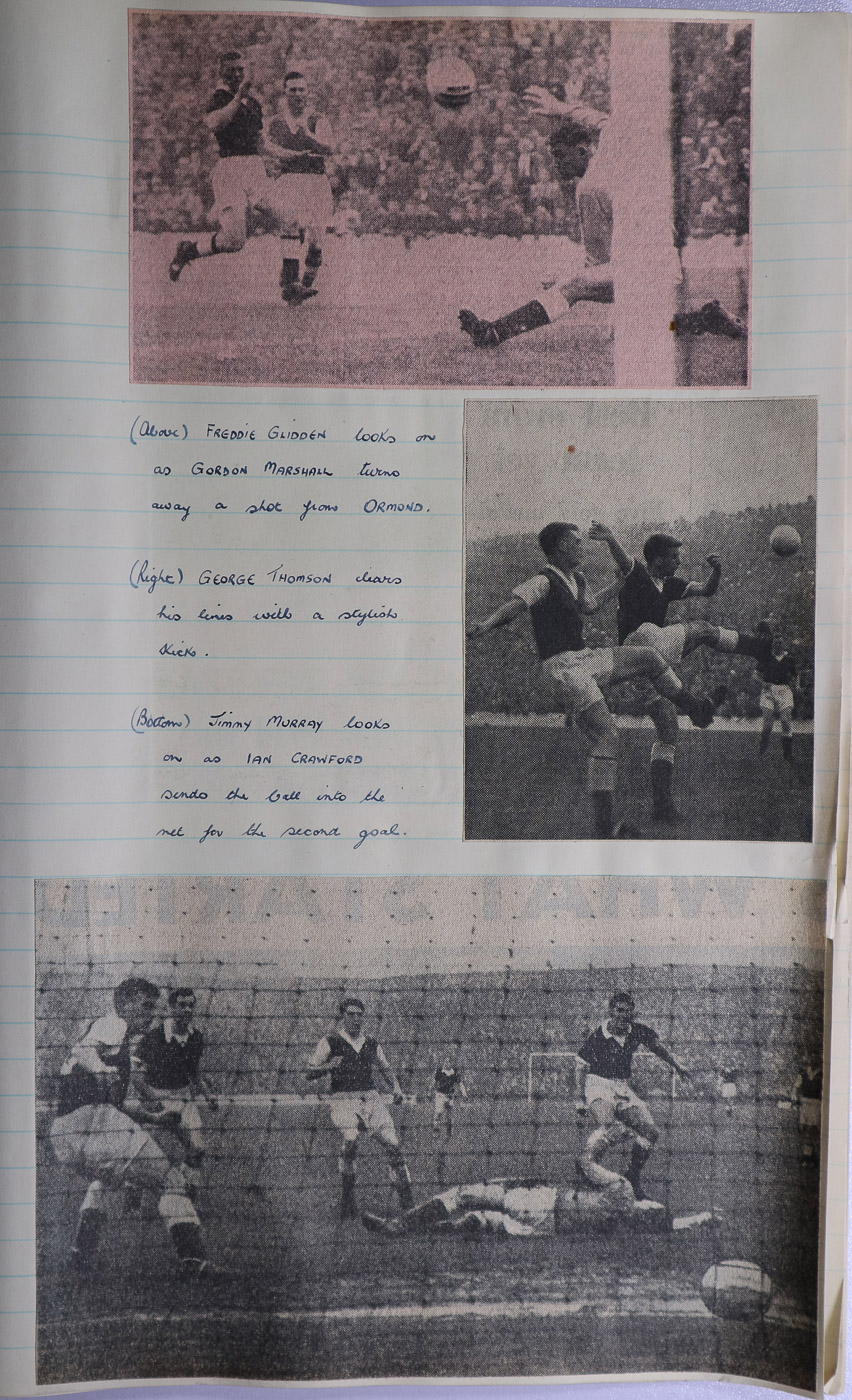 (Above) FREDDIE GLIDDEN looks on
as GORDON MARSHALL turns
away a shot from ORMOND.
(Right) GEORGE THOMSON clears
his lines with a stylish
kick.
(Bottom) JIMMY MURRAY looks
on as IAN CRAWFORD
sends the ball into the
net for the second goal.